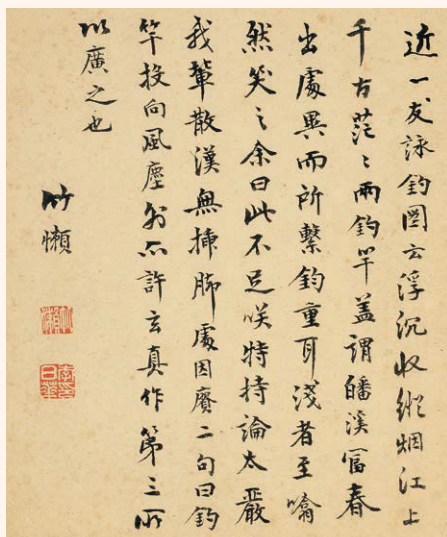 近一友詠釣圖云浮沉收縱烟江上
千古茫〻兩釣竿盖謂皤溪富春
出處異而所繫鈞重耳淺者至嗡
然笑之余曰此不足咲特持論太嚴
我輩散漢無揷脚處因賡二句曰釣
竿投向風塵外亦許玄真作第三所
以廣之也
竹懶
竹懶
李日華